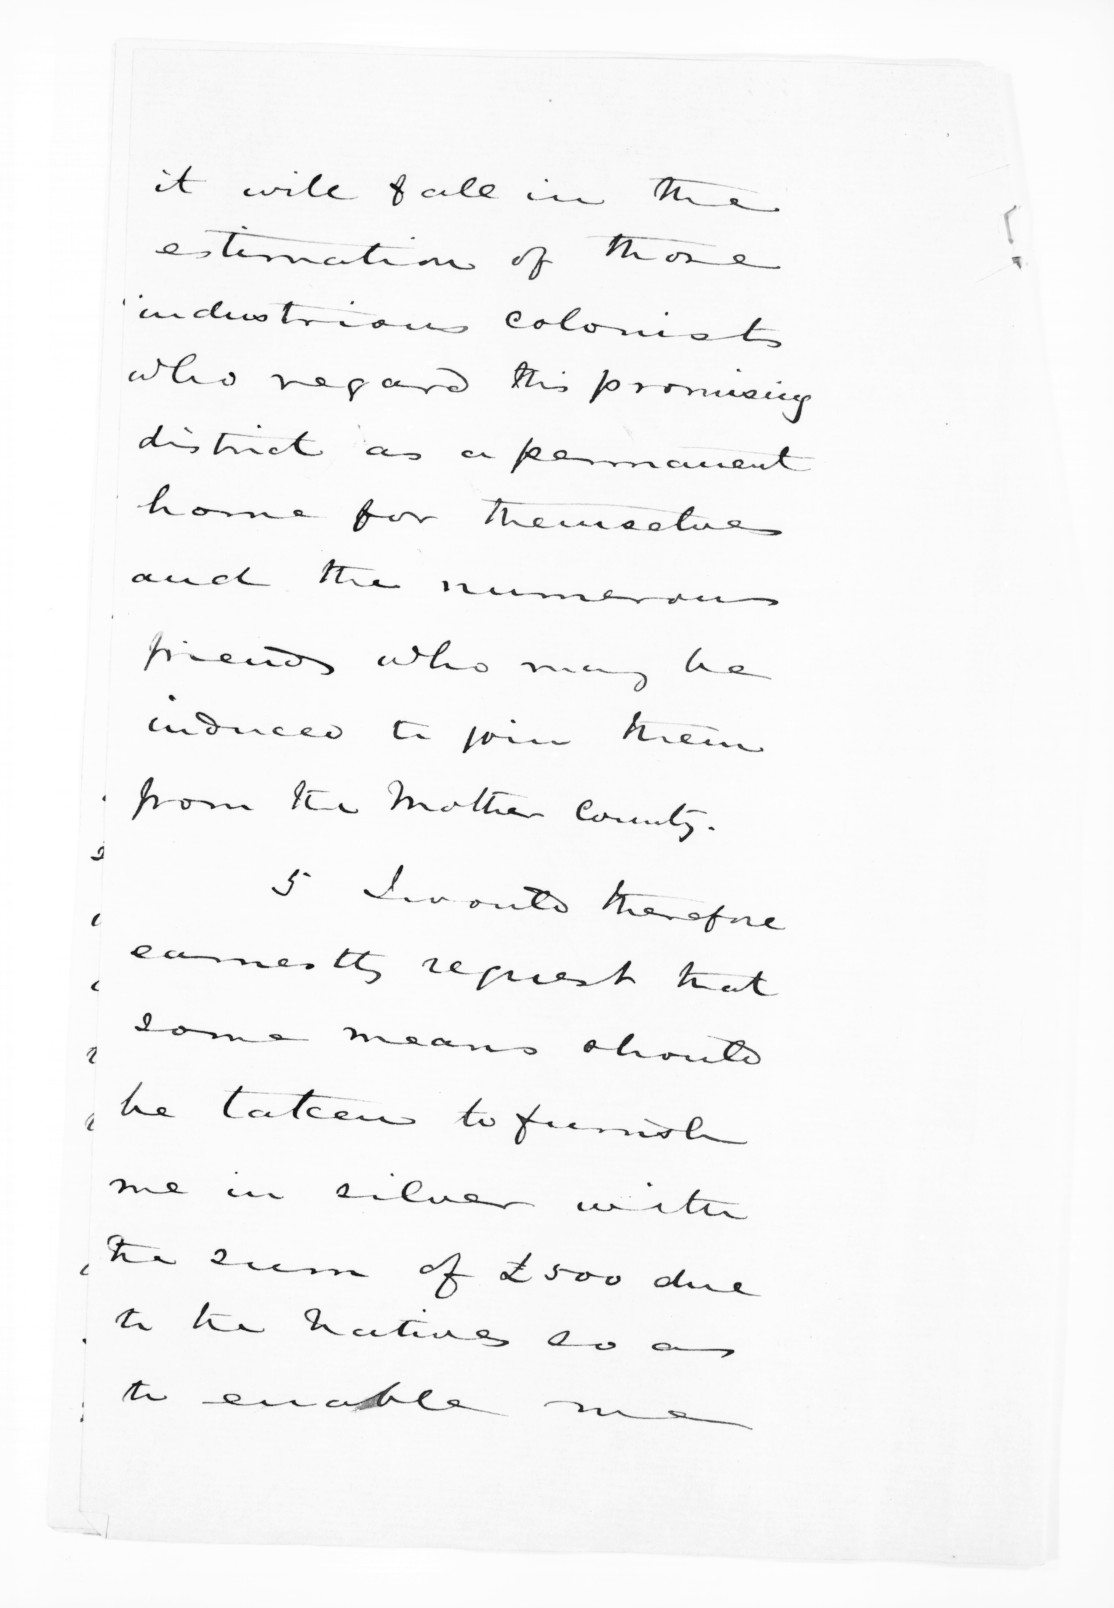 it will fall in the
estimation of those
industrious colonists
who regard this promising
district as a permanent
home for themselves
and the numerous
friends who may be
induced to join them
from the Mother County.
5 I would therefore
earnestly request that
some means should
be taken to furnish
me in silver with
the sum of £500 due
to the Natives so as
to enable me